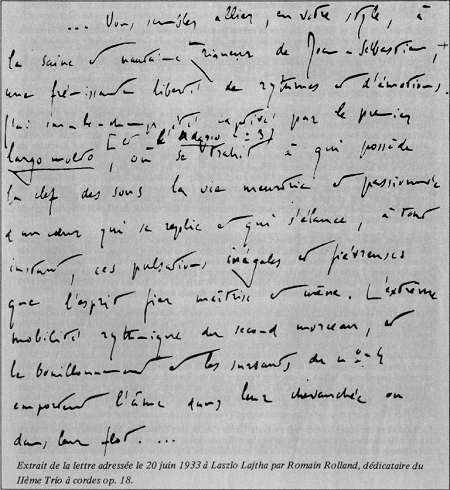 ... Vous semblez allier, en votre style, à
la saine et hautaine rigueur de Jean-Sébastien,
une frémissante liberté de rythmes et d'émotions.
J'ai été captivé par le premier
largo molto, [et l'Adagio (nº 3)] où se trahit à qui possède
la clef des sons la vie meurtrie et passionnée
d'un cœur qui se replie et qui s'élance, à tout
instant, ces pulsations inégales et fiévreuses
que l'esprit fier maîtrise et mène. L'extrême
mobilité rythmique du second morceau, et
le bouillonnement et les sursauts du nº 4
emportent l'âme dans leur chevauchée ou
dans leur flot. ...
Extrait de la lettre adressée le 20 juin 1933 à Laszlo Lajtha par Romain Rolland, dédicataire du
IIème Trio à cordes op. 18.